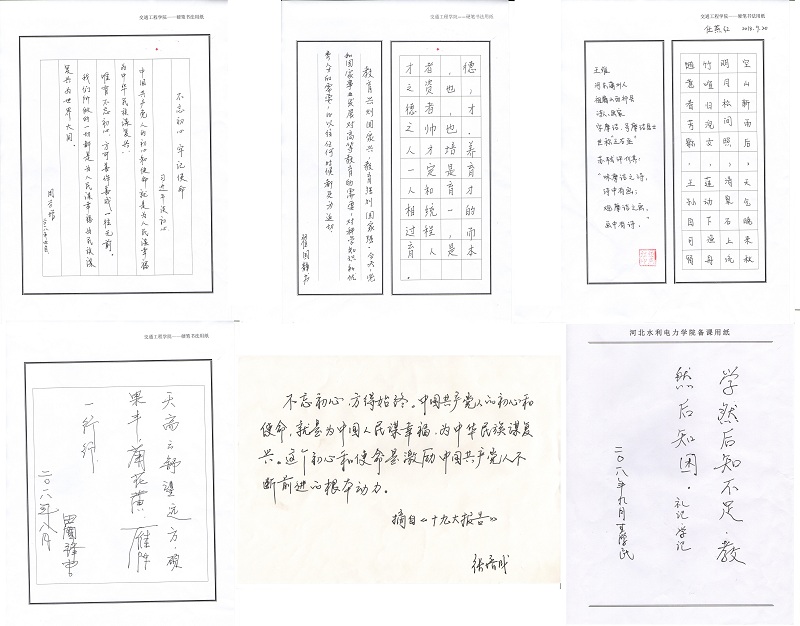 交通工程学院——硬笔书法用纸
不忘初心 牢记使命
习近平谈初心
中国共产党人的初心和使命,就是为人民谋幸福
为中华民族谋复兴.
唯有不忘初心,方可善作善成一往无前.
我们所做的一切都是为人民谋幸福为民族谋
复兴为世界大同.
交通工程学院——硬笔书法用纸
才者,德
之资也;
德者,才
之帅也.
人才培养
一定是育
人和育才
相统一的
过程,而
育人是本
。
教育兴则国家兴,教育强则国家强.今天,党
和国家事业发展对高等教育的需要,对科学知识和优
秀人才的需要,比以往任何时候都更为迫切
崔国静书
交通工程学院——硬笔书法用纸
任燕红 2018.9.20
空山新雨后,天气晚来秋
明月松间照,清泉石上流
竹喧归浣女,莲动下渔舟
随意春芳歇,王孙自可留
王维
河东蒲州人
祖籍山西祁县
诗人画家
字摩诘,号摩诘居士
世称"王右丞"
苏轼评价其:
"味摩诘之诗,
诗中有画;
观摩诘之画,
画中有诗."
交通工程学院——硬笔书法用纸
天高云舒望远方,硕
果丰蒲花黄,雁阵
一行行.
二〇一八年八月
不忘初心,方得始终。中国共产党人的初心和
使命,就是为中国人民谋幸福,为中华民族谋复
兴。这个初心和使命是激励中国共产党人不
断前进的根本动力.
摘自《十九大报告》
张培成
河北水利电力学院备课用纸
学然后知不足,教
然后知困。礼记·学记
二〇一八年九月